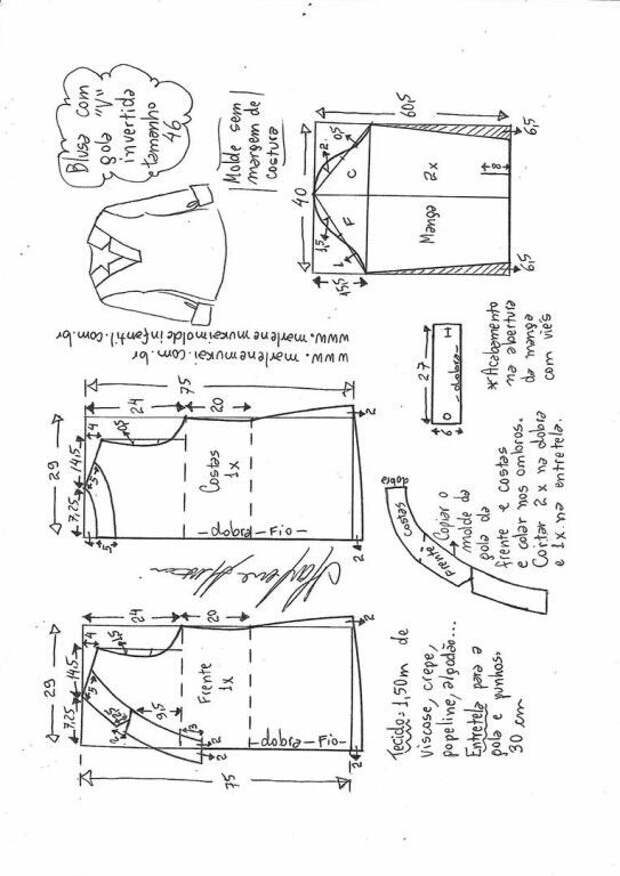 Blusa com
gola "V"
invertida
tamanho
46
Molde sem
margem de
costura
www.marlenemukaimoldeinfantil.com.br
www.marlenemukai.com.br
40
15,5
1,5
1
F
C
2
0,5
60,5
Manga
2x
8
6,5
6,5
29
7,25
14,5
4
5
5
0,5
24
20
75
Costas
1x
dobra - Fio -
2
2
27
6
dobra
*Acabamento
na abertura
da manga
com viés
dobra
costas
frente
Copiar o
molde da
gola da
frente e costas
e colar nos ombros.
Cortar 2x na dobra
e 1x. na entretela.
29
7,25
14,5
4
5
1,5
24
20
9,5
2
3
2
2
75
Frente
1x
dobra - Fio -
2
2
Tecido: 1,50m de
viscose, crepe,
popeline, algodão...
Entretela para a
gola e punhos.
30 cm